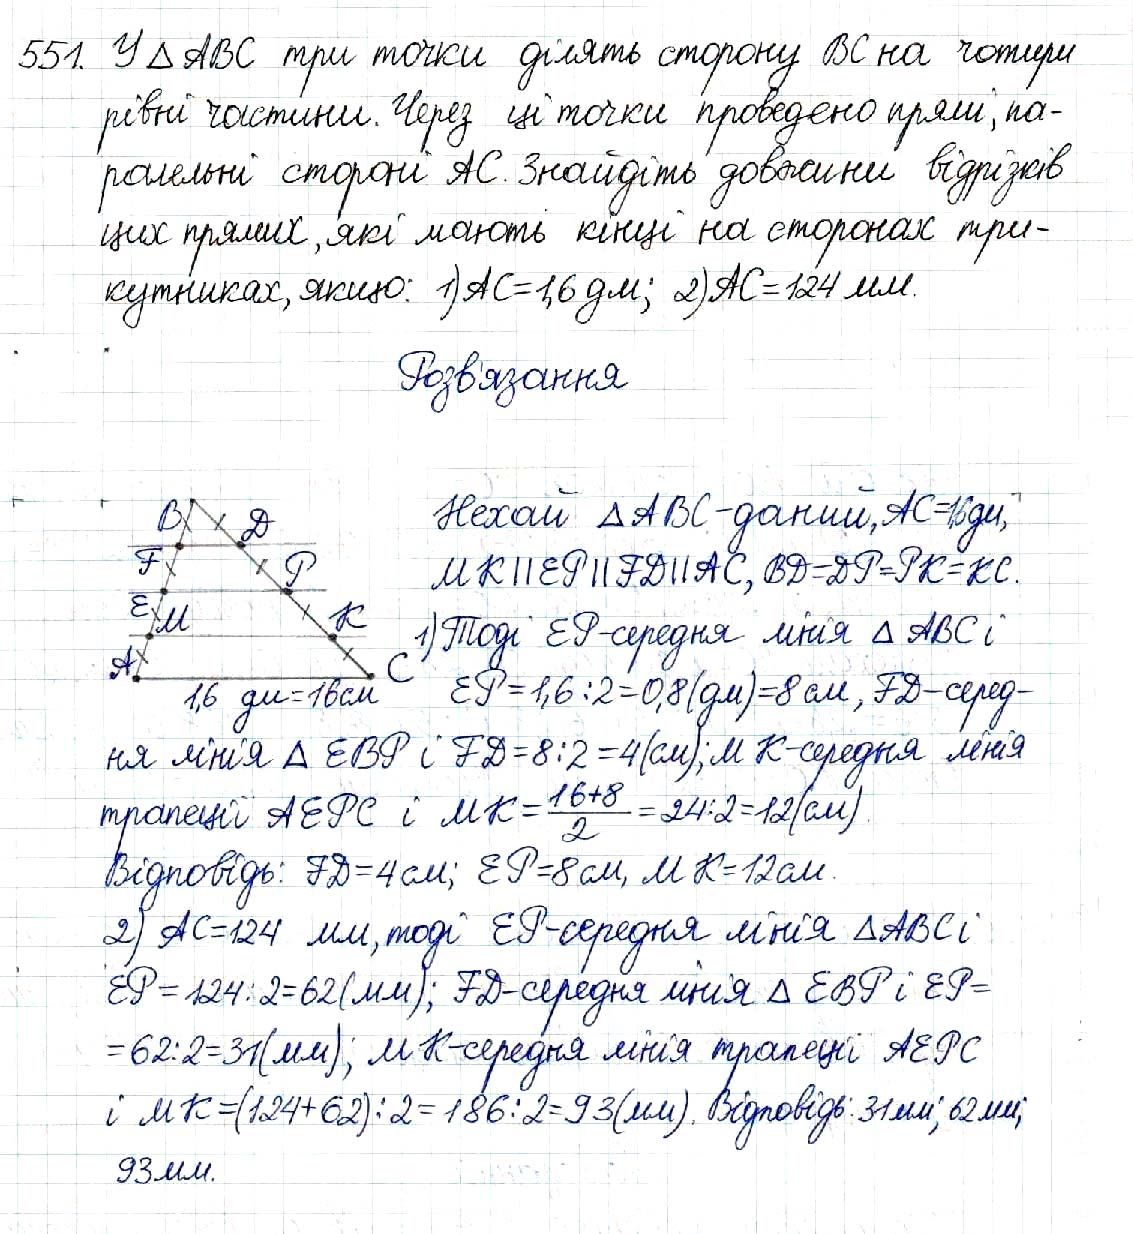 551. У △ ABC три точки ділять сторону BC на чотири
рівні частини. Через ці точки проведено прямі, па-
ралельні стороні AC. Знайдіть довжини відрізків
цих прямих, які мають кінці на сторонах три-
кутниках, якщо: 1) AC=1,6 дм; 2) AC=124 мм.
Розв'язання
Нехай △ ABC-даний, AC=16дм,
MK||EP||FD||AC, BD=DP=PK=KC.
1) Тоді EP-середня лінія △ ABC і
EP=1,6:2=0,8(дм)=8см, FD-серед-
ня лінія △ EBP і FD=8:2=4(см); MK-середня лінія
трапеції AEPC і MK=16+8/2=24:2=12(см).
Відповідь: FD=4см; EP=8см, MK=12см.
2) AC=124 мм, тоді EP-середня лінія △ABC і
EP=124:2=62(мм); FD-середня лінія △ EBP і EP=
=62:2=31(мм); MK-середня лінія трапеції AEPC
і MK=(124+62):2=186:2=93(мм). Відповідь: 31мм; 62мм;
93мм.
B D
F P
E M K
A C
1,6 дм=16см